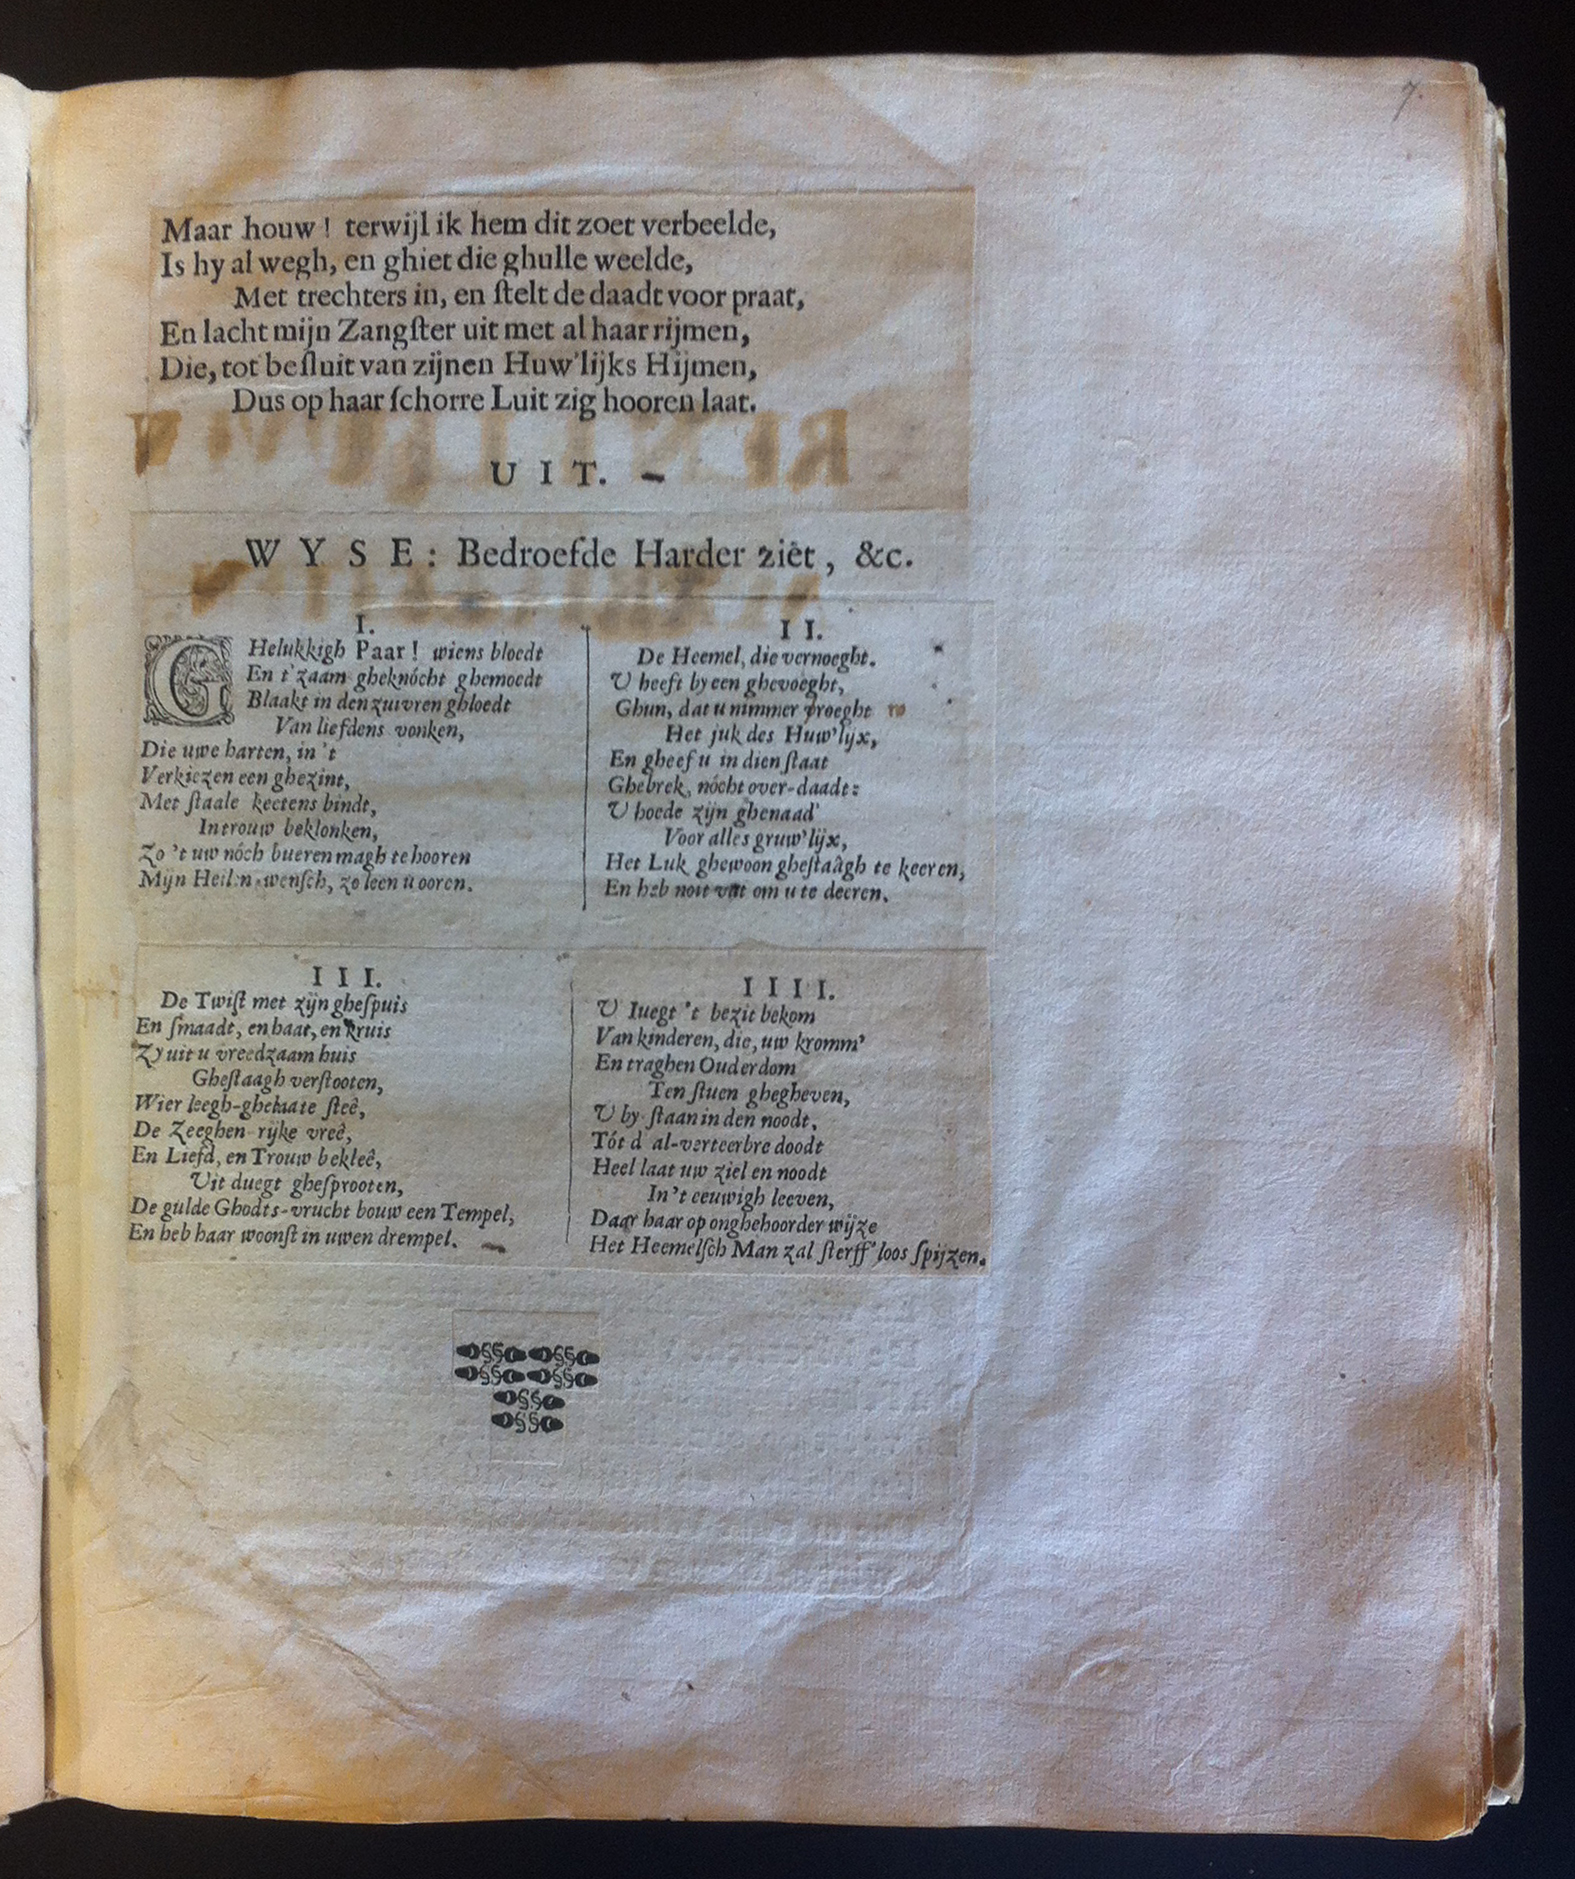 7.
Maar houw! terwijl ik hem dit zoet verbeelde,
Is hy al wegh, en ghiet die ghulle weelde,
Met trechters in, en ſtelt de daadt voor praat,
En lacht mijn Zangſter uit met al haar rijmen,
Die, tot beſluit van zijnen Huw'lijks Hijmen,
Dus op haar ſchorre Luit zig hooren laat.
UIT.
WYSE: Bedroefde Harder ziet, &c.
I.
GHelukkigh Paar! wiens bloedt
En t'zaam gheknócht ghemoedt
Blaakt in den zuivren ghloedt
Van liefdens vonken,
Die uwe harten, in 't
Verkiezen een ghezint,
Met ſtaale keetens bindt,
In trouw beklonken,
Zo 't uw nóch bueren magh te hooren
Mijn Heil en wenſch, zo leen u ooren.
II.
De Heemel, die vernoeght.
V heeft by een ghevoeght,
Ghun, dat u nimmer vroeght
Het juk des Huw'lijx,
En gheef u in dien ſtaat
Ghebrek, nócht over-daadt:
V hoede zijn ghenaad'
Voor alles gruw'lijx,
Het Luk ghewoon gheſtaâgh te keeren,
En heb noit vat om u te deeren.
III.
De Twiſt met zijn gheſpuis
En ſmaadt, en haat, en kruis
Zy uit u vreedzaam huis
Gheſtaagh verſtooten,
Wier leegh-ghelaate ſteê,
De Zeeghen-rijke vreê,
En Liefd, en Trouw bekleê,
Uit duegt gheſprooten,
De gulde Ghodts-vrucht bouw een Tempel,
En heb haar woonſt in uwen drempel.
IIII.
V Iuegt 't bezit bekom
Van kinderen, die, uw kromm'
En traghen Ouderdom
Ten ſtuen ghegheven,
V by ſtaan in den noodt,
Tót d' al-verteerbre doodt
Heel laat uw ziel en noodt
In 't eeuwigh leeven,
Daar haar op onghehoorder wijze
Het Heemelſch Man zal ſterff'loos ſpijzen.